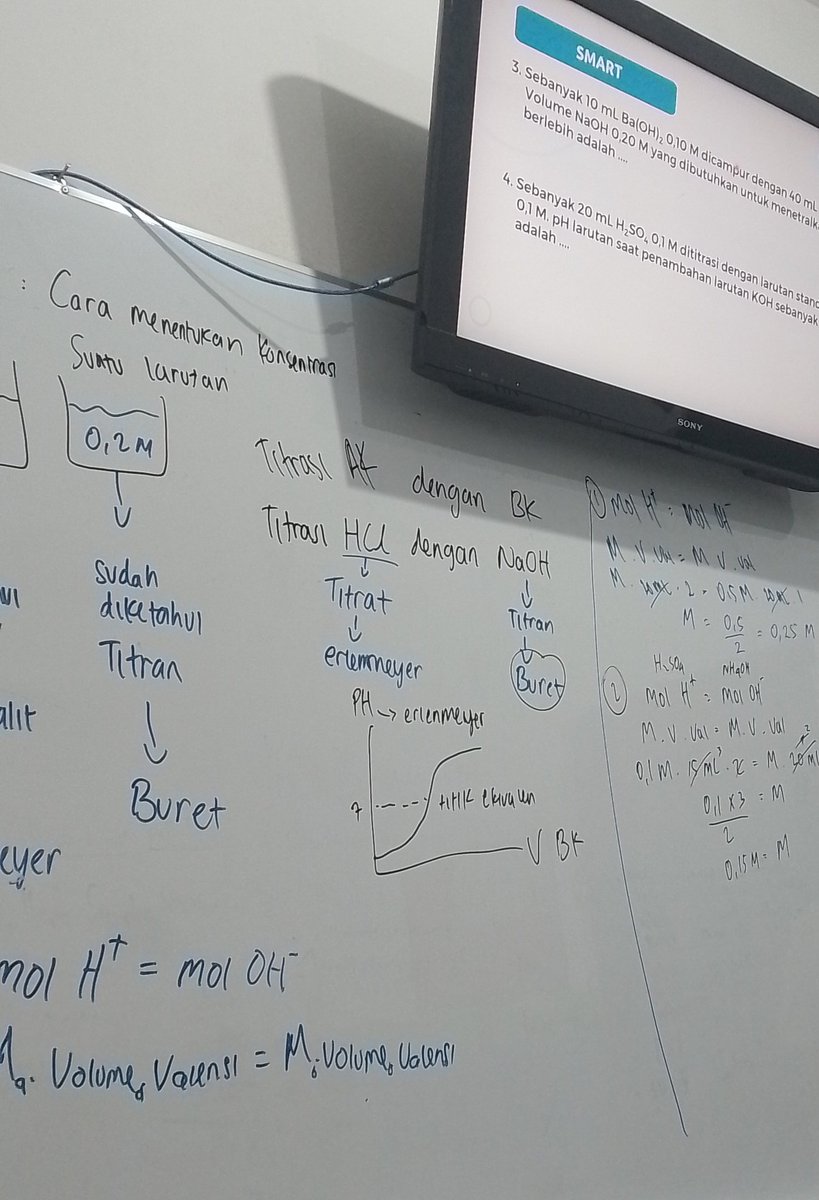 SMART
3. Sebanyak 10 mL Ba(OH)₂ 0,10 M dicampur dengan 40 mL
Volume NaOH 0,20 M yang dibutuhkan untuk menetralk
berlebih adalah ....
4. Sebanyak 20 mL H₂SO₄ 0,1 M dititrasi dengan larutan stand
0,1 M. pH larutan saat penambahan larutan KOH sebanyak
adalah ....
SONY
: Cara menentukan konsentrasi
Suatu larutan
0,2 M
↓
sudah
diketahui
Titran
↓
Buret
alit
eyer
Titrasi AK dengan BK
Titrasi HCl dengan NaOH
↓ ↓
Titrat Titran
↓ ↓
erlenmeyer Buret
PH → erlenmeyer
7 titik ekivalen
V BK
mol H⁺ = mol OH⁻
Mₐ. Volumeₐ Valensi = M. Volume, Valensi
① mol H⁺ = mol OH⁻
M . V. val = M V. val
M. 2 = 0,5 M 1
M = 0,5/2 = 0,25 M
② H₂SO₄ NH₄OH
mol H⁺ = mol OH⁻
M. V. Val = M. V. Val
0,1 M. 15 mL³. 2 = M. 20 mL ²
0,1 x 3 / 2 = M
0,15 M = M